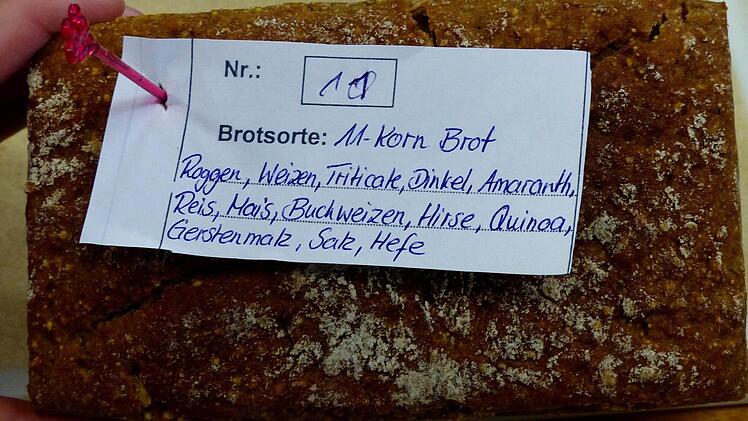 Nr.: 11
Brotsorte: 11-Korn Brot
Roggen, Weizen, Triticale, Dinkel, Amaranth,
Reis, Mais, Buchweizen, Hirse, Quinoa,
Gerstenmalz, Salz, Hefe